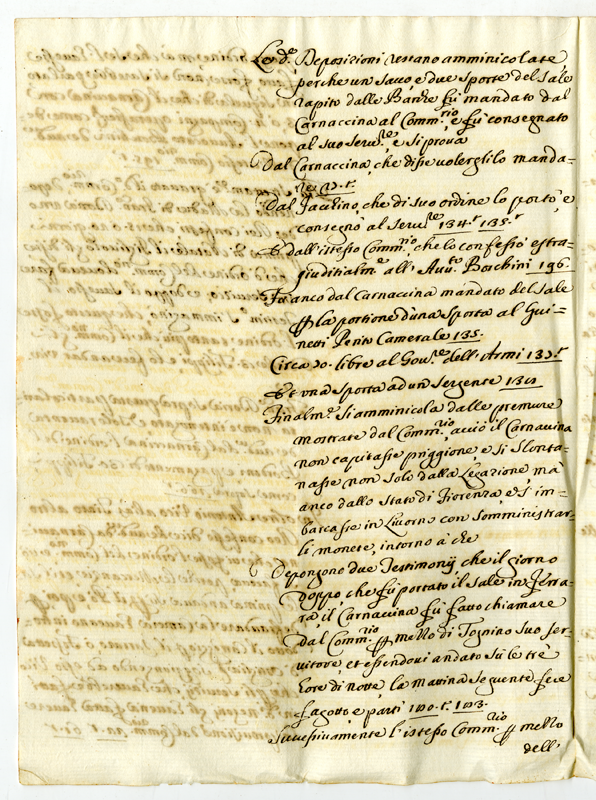 Le d.e Deposizioni restano amminicolate
perche un sacco, e due sporte del sale
rapito dalle Barche fù mandato dal
Carnaccina al Comm.rio, e fù consegnato
al suo Serv.re, e si prova
Dal Carnaccina, che disse volerglilo manda=
re
Dal Facchino, che di suo ordine lo portò, e
consegnò al Serv.re 134.t 135.t
Et dall'istesso Comm.rio, che lo confessò estra=
giuditialm.e all' Aud.e Boschini 196.
Fù anco dal Carnaccina mandato del sale
la portione d'una sporta al
Perito Camerale 135.
Circa 20. libre al Gov.re dell'Armi
Et una sporta ad un Sergente
Finalm.e si amminicola dalle premure
mostrate dal Comm.rio, acciò il Carnaccina
non capitasse priggione, e si slonta=
nasse non solo dalla Legazione, mà
anco dallo Stato di Fiorenza, e s'im=
barcasse in Livorno con somministrar=
li monete, intorno à che
Depongono due Testimonij, che il giorno
doppo, che fù portato il sale in Ferra=
ra, il Carnaccina fù fatto chiamare
dal Comm.rio mezzo di Tognino suo ser=
vitore, et essendovi andato sù le trè
hore di notte, la mattina seguente fece
fagotto, e partì
Successivamente l'istesso Comm.rio mezzo
dell'